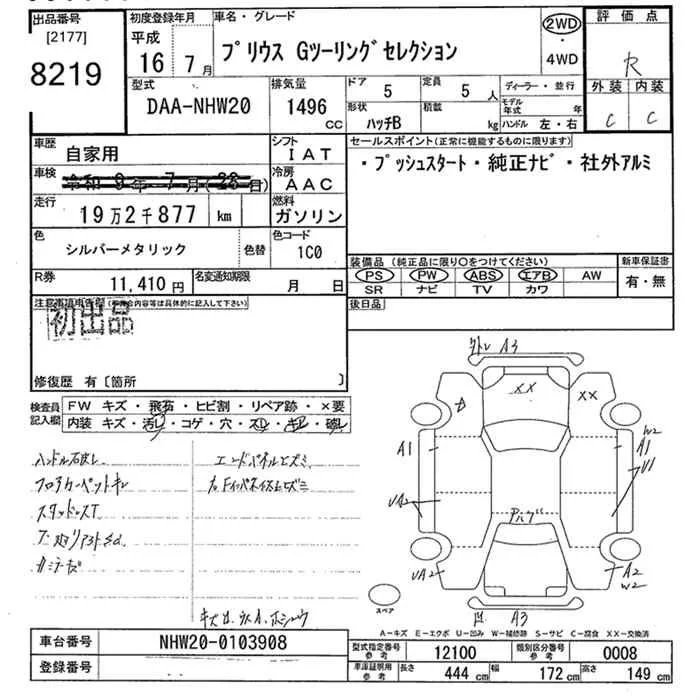 出品番号
[2177]
8219
初度登録年月
平成
16 7月
車名・グレード
プリウス Gツーリングセレクション
2WD
・
4WD
評価点
R
外装 内装
C C
型式
DAA-NHW20
排気量
1496 CC
ドア 5
定員 5人
形状 ハッチB
積載 kg
ディーラー・並行
モデル年式 年
ハンドル 左・右
車歴
自家用
シフト
IAT
車検
令和 9年 7月(23日)
冷房
AAC
走行
19万2千877 km
燃料
ガソリン
色
シルバーメタリック
色替
色コード
1C0
R券
11,410円
名変通知期限
月 日
セールスポイント(正常に機能するものに限ります)
・プッシュスタート・純正ナビ・社外アルミ
装備品(純正品に限り○をつけてください)
PS PW ABS エアB AW
SR ナビ TV カワ
新車保証書
有・無
後日品
注意事項申告欄
初出品
修復歴 有〔箇所 〕
検査員記入欄
FW キズ・飛石・ヒビ割・リペア跡・×要
内装 キズ・汚レ・コゲ・穴・スレ・キレ・破レ
フロアカーペットキレ
エンドパネルヒズミ
A3
XX
XX
A1
W2
A1
U1
UA2
UA2
A2
W2
A3
スペア
A-キズ E-エクボ U-凹み W-補修跡 S-サビ C-腐食 XX-交換済
車台番号
NHW20-0103908
登録番号
型式指定番号 参考
12100
類別区分番号 参考
0008
車庫証明用 参考
長さ 444 cm
幅 172 cm
高さ 149 cm